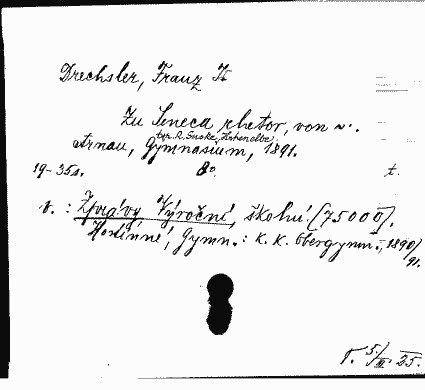 Drechsler, Franz
Zu Seneca rhetor, von ~.
typ. R. Suske, Hohenelbe
Arnau, Gymnasium, 1891.
19-35 s. 8o. t.
v.: Zprávy Výroční, školní [75000].
Hostinné, Gymn.: K. K. Obergymn., 1890/91.
5/III. 25.